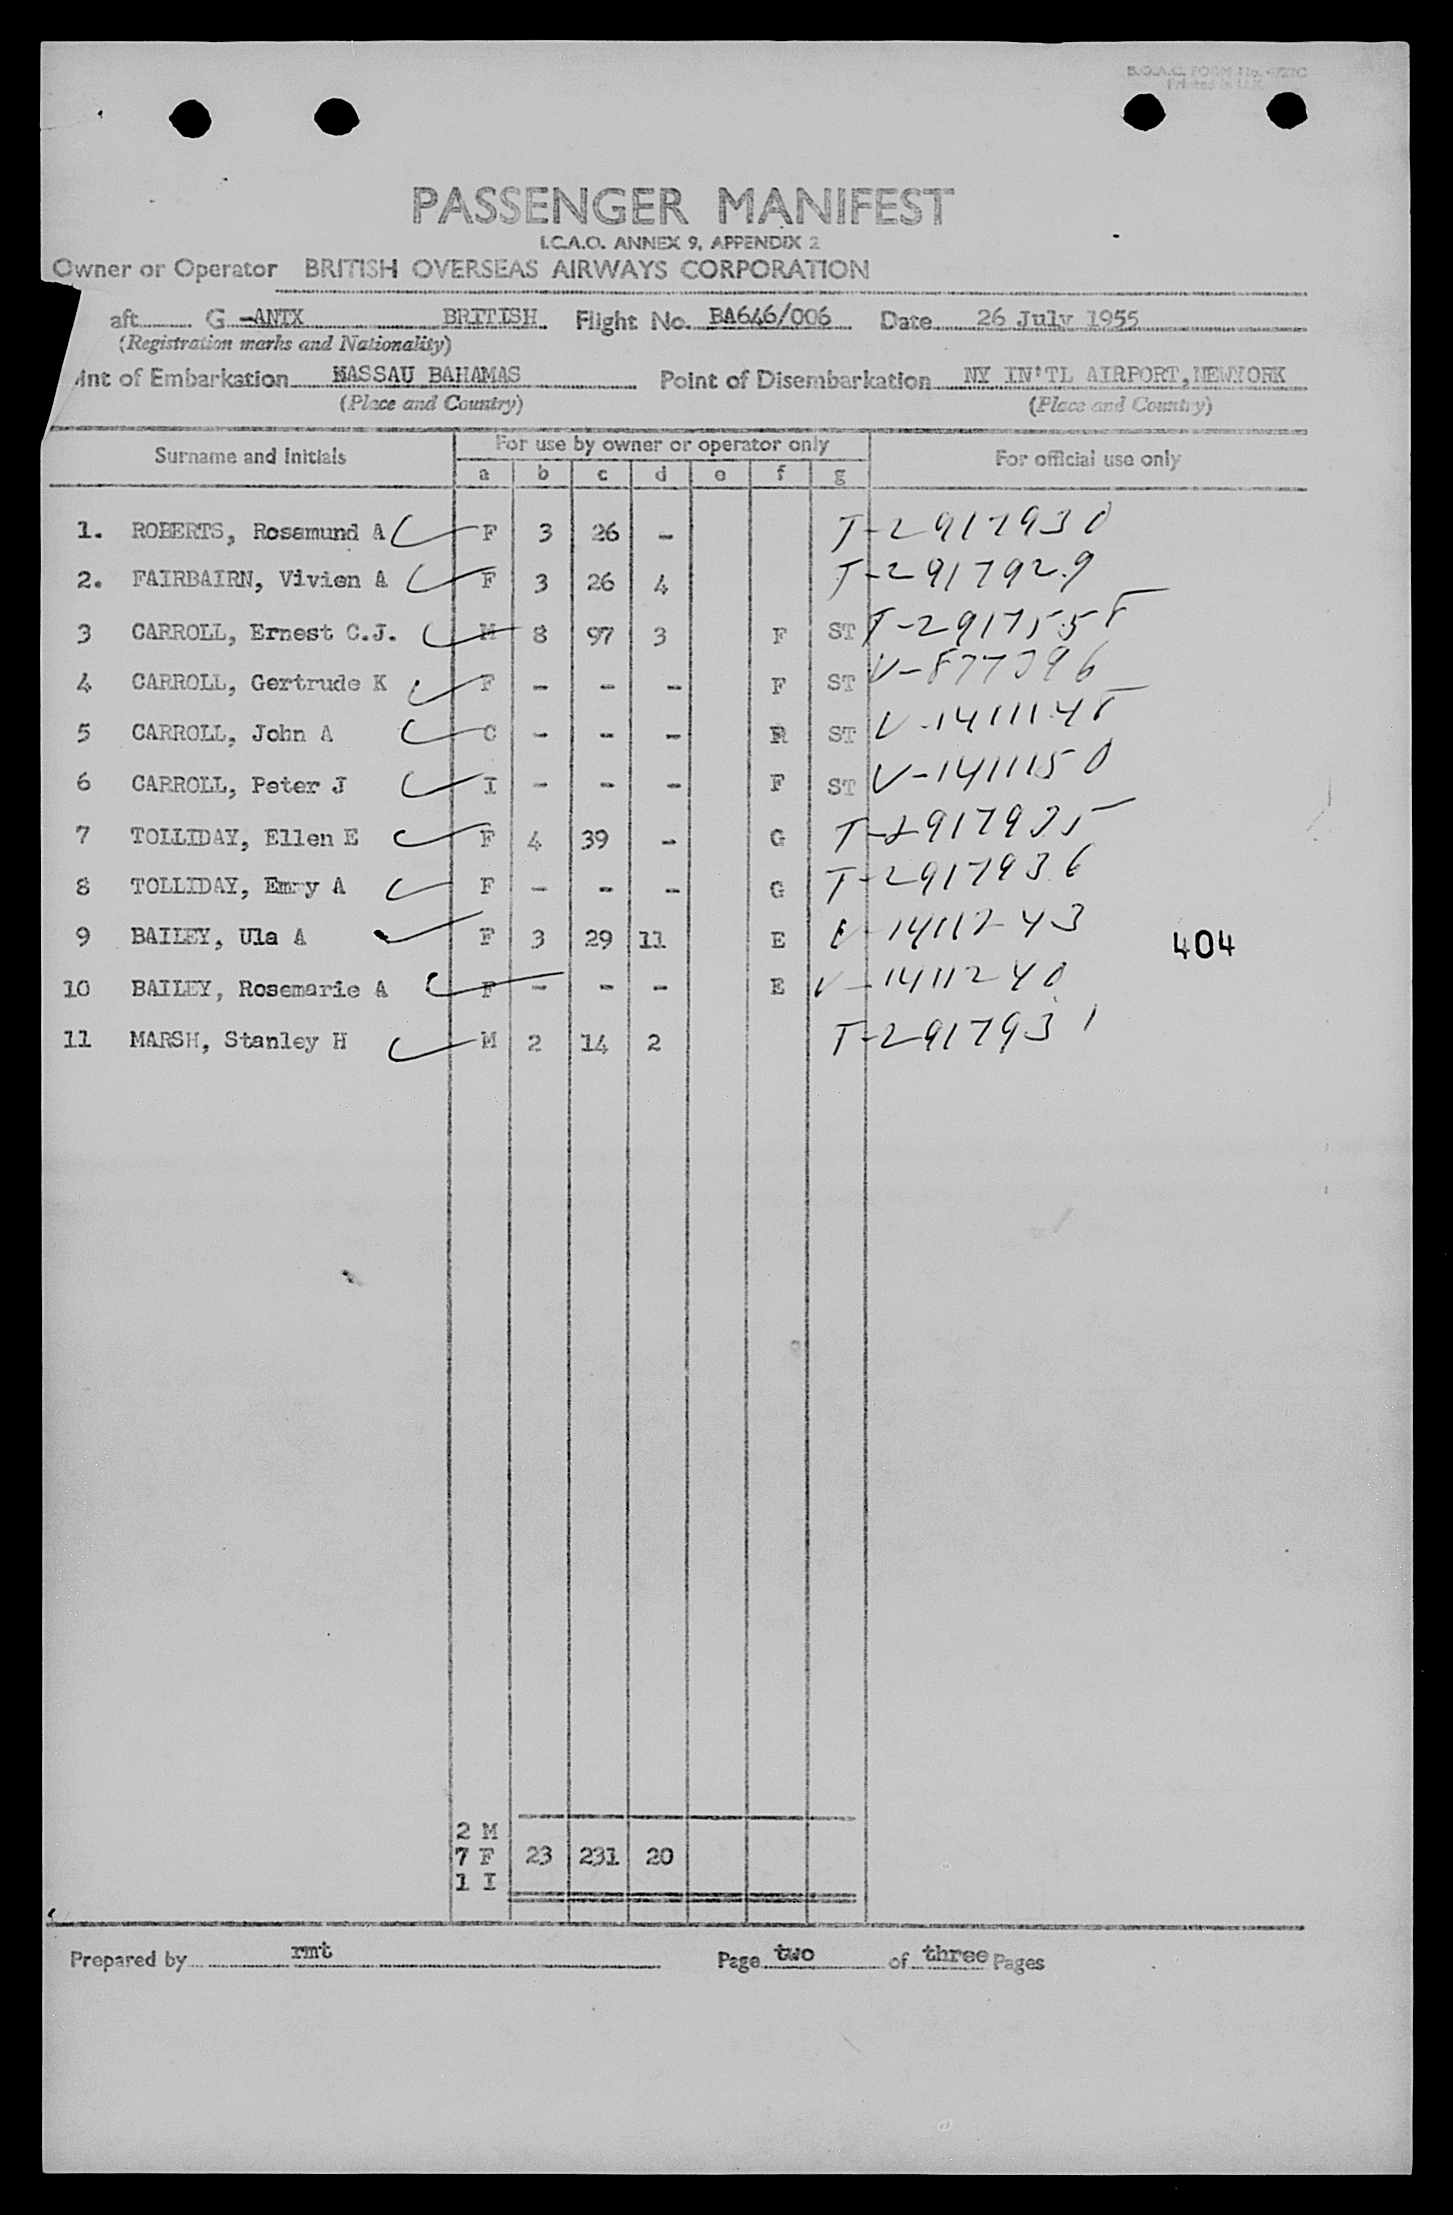 B.O.A.C. FORM No. 4727C
Printed in U.K.
PASSENGER MANIFEST
I.C.A.O. ANNEX 9, APPENDIX 2
Owner or Operator BRITISH OVERSEAS AIRWAYS CORPORATION
aft G -ANTX BRITISH Flight No. BA646/006 Date 26 July 1955
(Registration marks and Nationality)
int of Embarkation NASSAU BAHAMAS Point of Disembarkation NY IN'TL AIRPORT, NEWYORK
(Place and Country) (Place and Country)
Surname and Initials For use by owner or operator only For official use only
a b c d e f g
1. ROBERTS, Rosamund A F 3 26 - T-2917930
2. FAIRBAIRN, Vivien A F 3 26 4 T-2917929
3 CARROLL, Ernest C.J. M 8 97 3 F ST T-2917558
4 CARROLL, Gertrude K F - - - F ST V-877396
5 CARROLL, John A C - - - F ST V-1411148
6 CARROLL, Peter J I - - - F ST V-1411150
7 TOLLIDAY, Ellen E F 4 39 - G T-2917935
8 TOLLIDAY, Emry A F - - - G T-2917936
9 BAILEY, Ula A F 3 29 11 E V-1411243 404
10 BAILEY, Rosemarie A F - - - E V-1411240
11 MARSH, Stanley H M 2 14 2 T-2917931
2 M
7 F 23 231 20
1 I
Prepared by rmt Page two of three Pages